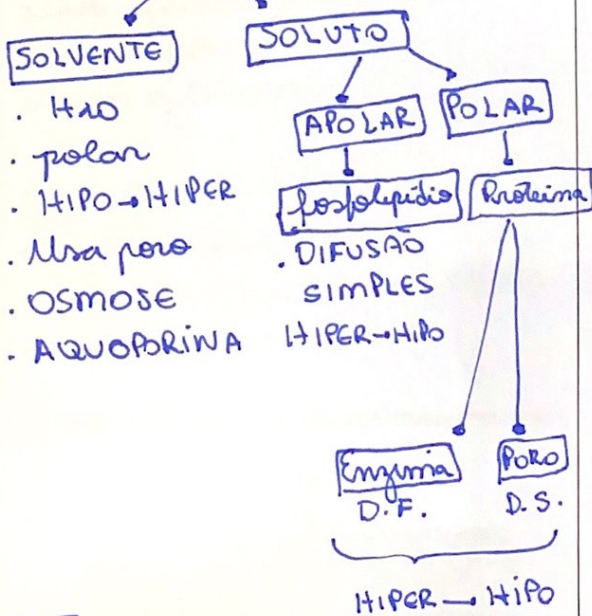 SOLVENTE
. H2O
. polar
. HIPO→HIPER
. Usa poro
. OSMOSE
. AQUOPORINA
SOLUTO
APOLAR
POLAR
fosfolipídio
Proteína
. DIFUSÃO
SIMPLES
HIPER→HIPO
Enzima
D.F.
PORO
D.S.
HIPER → HIPO